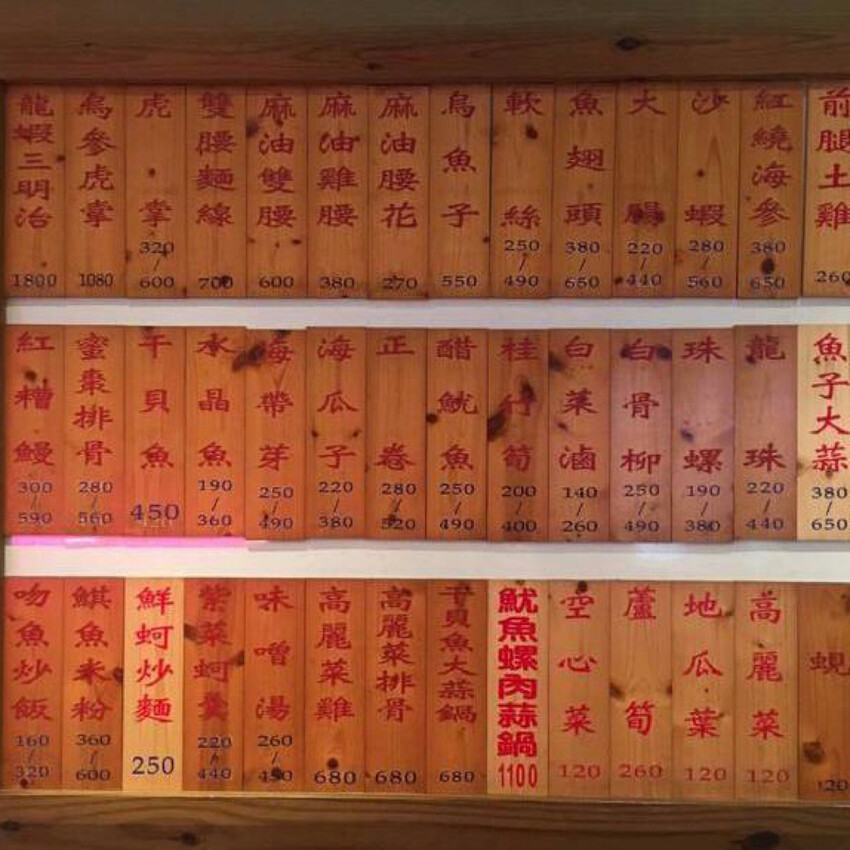 龍蝦三明治 1800
烏參虎掌 1080
虎掌 320/600
雙腰麵線 700
麻油雙腰 600
麻油雞腰 380
麻油腰花 270
烏魚子 550
軟絲 250/490
魚翅頭 380/650
大腸 220/440
沙蝦 280/560
紅繞海參 380/650
前腿土雞 260
紅糟鰻 300/590
蜜棗排骨 280/560
干貝魚 450
水晶魚 190/360
海帶芽 250/490
海瓜子 220/380
正卷 280/520
醋魷魚 250/490
桂竹筍 200/400
白菜滷 140/260
白骨柳 250/490
珠螺 190/380
龍珠 220/440
魚子大蒜 380/650
吻魚炒飯 160/320
鯕魚米粉 360/600
鮮蚵炒麵 250
紫菜蚵羹 220/440
味噌湯 260/450
高麗菜雞 680
高麗菜排骨 680
干貝魚大蒜鍋 680
魷魚螺肉蒜鍋 1100
空心菜 120
蘆筍 260
地瓜葉 120
高麗菜 120
蜆